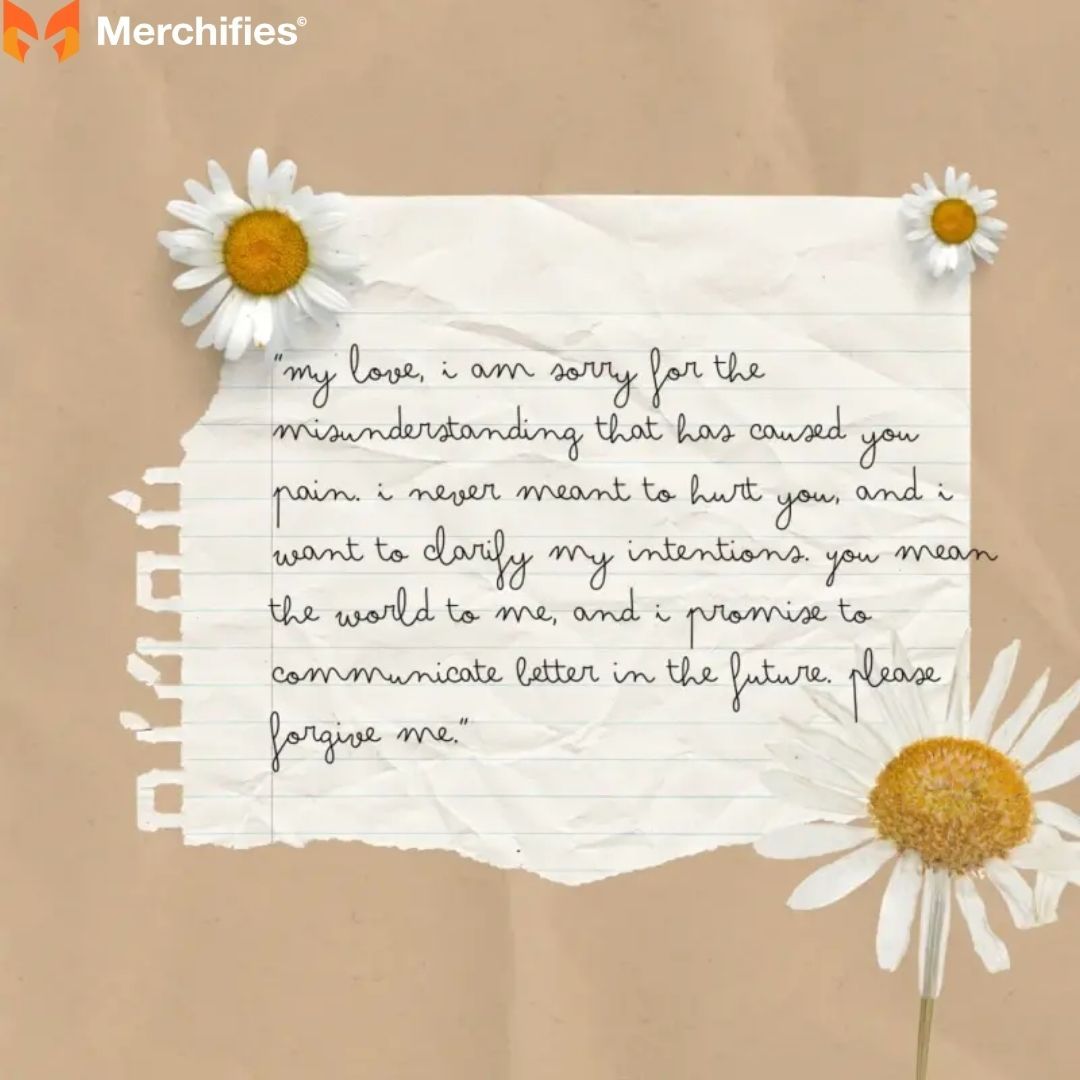 Merchifies©
"my love, i am sorry for the
misunderstanding that has caused you
pain. i never meant to hurt you, and i
want to clarify my intentions. you mean
the world to me, and i promise to
communicate better in the future. please
forgive me."